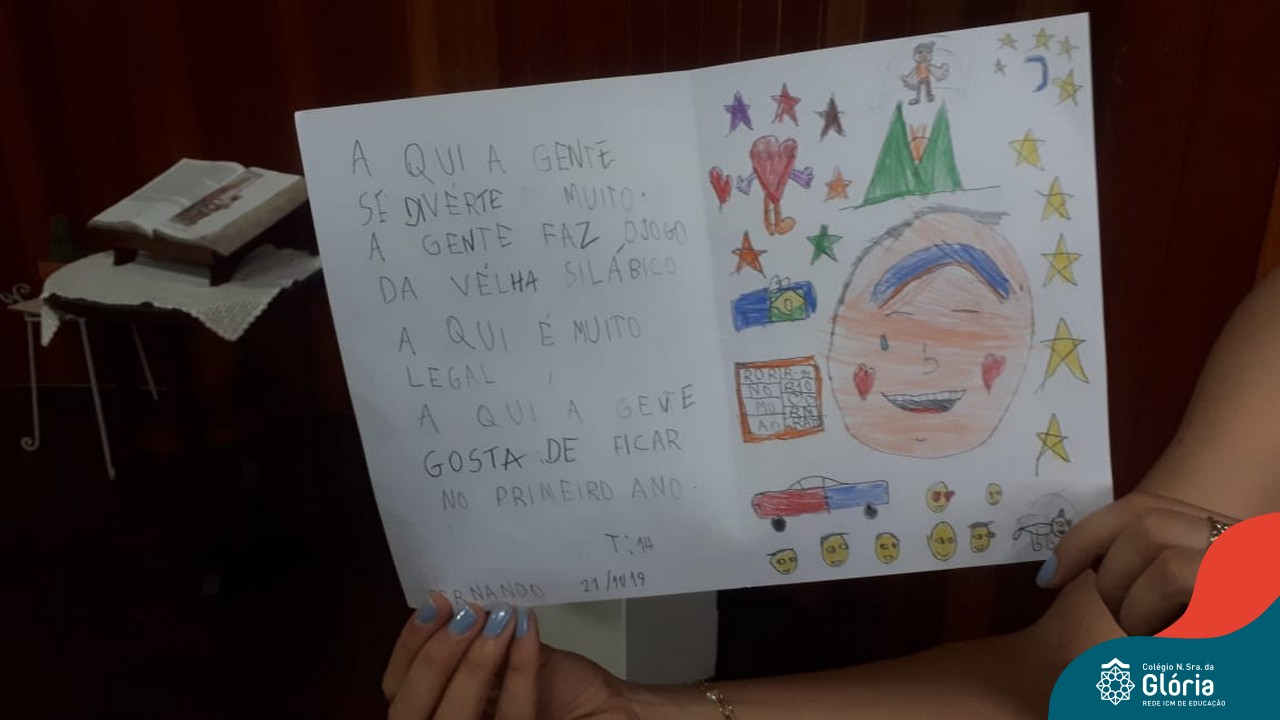 A QUI A GENTE
SE DIVÉRTE MUITO.
A GENTE FAZ ÓJOGO
DA VÉLHA SILÁBICO
A QUI É MUITO
LEGAL
A QUI A GENTE
GOSTA DE FICAR
NO PRIMEIRO ANO.
T:14
FERNANDO
Colégio N. Sra. da
Glória
REDE ICM DE EDUCAÇÃO